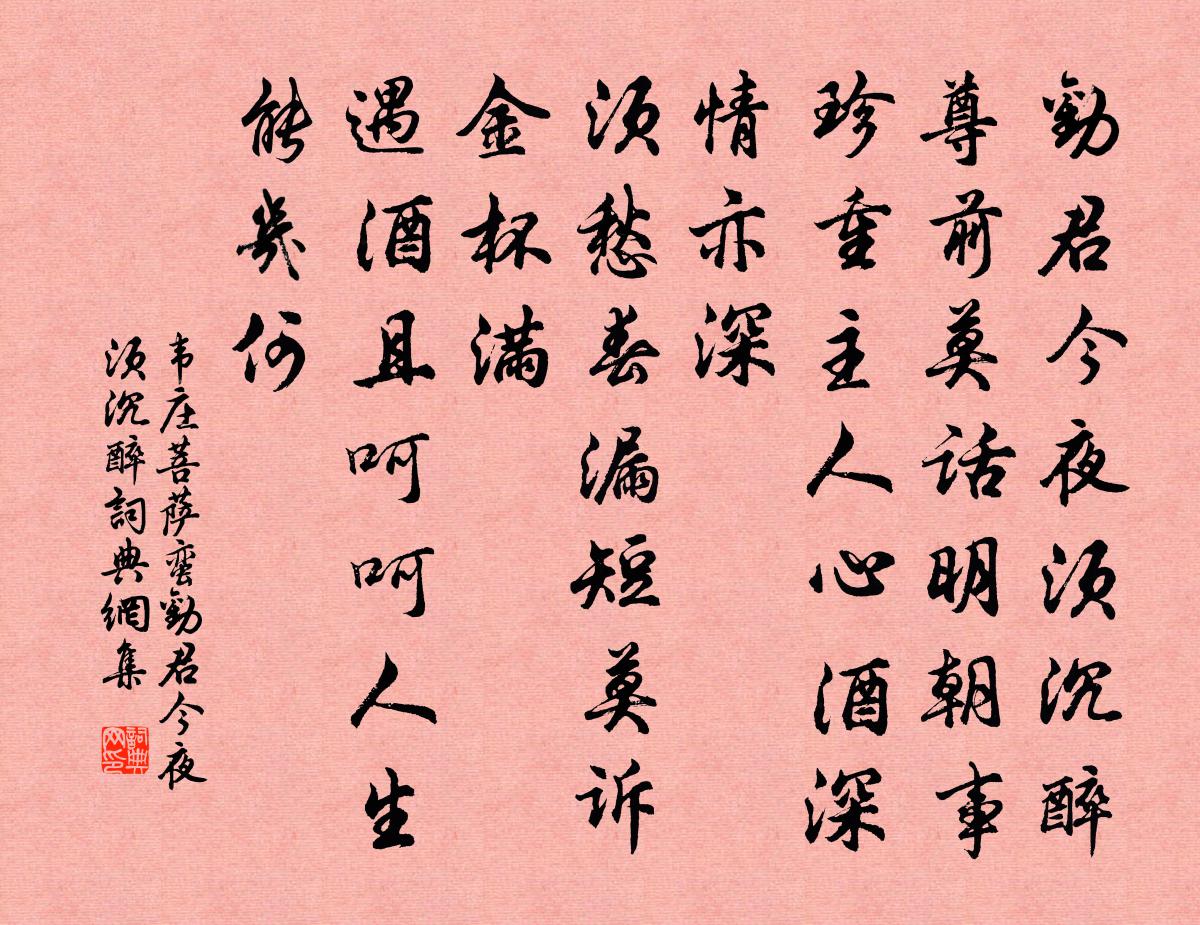 勸君今夜须沉醉
尊前莫话明朝事
珍重主人心酒深
情亦深
须愁春漏短莫诉
金杯满
遇酒且呵呵人生
能几何
韦庄菩萨蛮勸君今夜
须沉醉詞典網集
詞典
网印